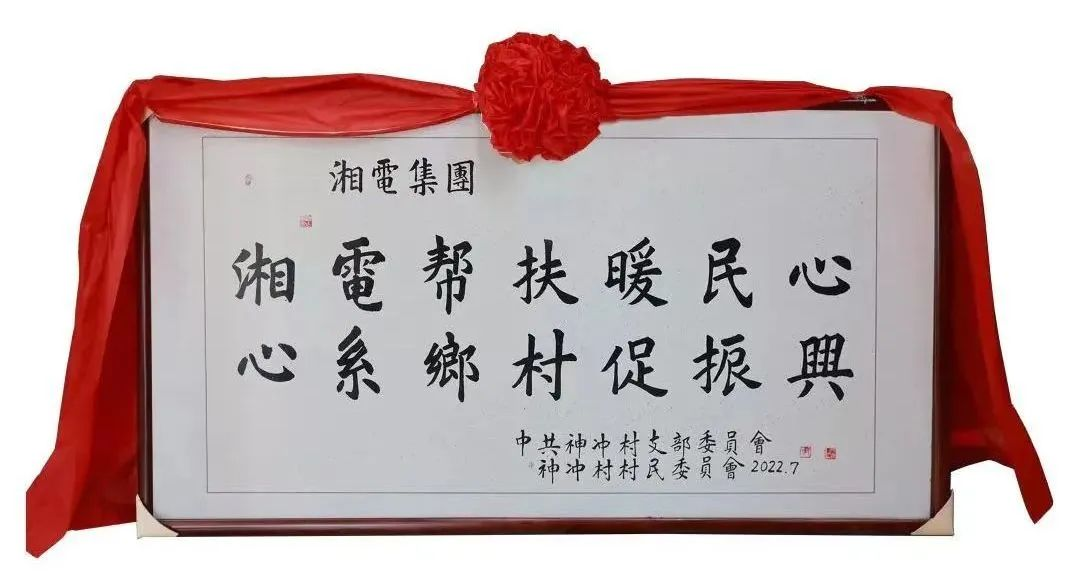 湘電集團
湘電帮扶暖民心
心系鄉村促振興
中共神冲村支部委員會
神冲村村民委員會2022.7